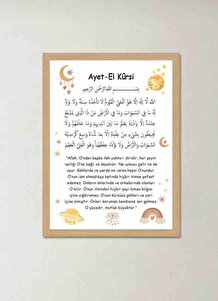 Ayet-El Kürsi
بِسْــــــمِ اللّٰهِ الرَّحْمٰنِ الرَّحِيْمِ
اَللّٰهُ لَا اِلٰهَ اِلَّا هُوَ الْحَيُّ الْقَيُّوْمُ لَا تَأْخُذُهُ سِنَةٌ وَلَا نَوْمٌ
لَهُ مَا فِي السَّمٰوَاتِ وَمَا فِي الْاَرْضِ مَنْ ذَا الَّذِي يَشْفَعُ
عِنْدَهُ اِلَّا بِاِذْنِهِ يَعْلَمُ مَا بَيْنَ اَيْدِيهِمْ وَمَا خَلْفَهُمْ وَلَا
يُحِيطُونَ بِشَيْءٍ مِنْ عِلْمِهِ اِلَّا بِمَا شَاءَ وَسِعَ كُرْسِيُّهُ
السَّمٰوَاتِ وَالْاَرْضَ وَلَا يَؤُدُهُ حِفْظُهُمَا وَهُوَ الْعَلِيُّ الْعَظِيمُ
"Allah, O'ndan başka ilah yoktur; diridir, her şeyin
varlığı O'na bağlı ve dayalıdır. Ne uykusu gelir ne de
uyur. Göklerde ve yerde ne varsa hepsi O'nundur.
O'nun izni olmadıkça katında hiçbir kimse şefaat
edemez. Onların önlerinde ve arkalarında olanları
O bilir. O'nun ilminden hiçbir şeyi kimse bilgisi
içine sığdıramaz. O'nun kürsüsü gökleri ve yeri
içine almıştır. Onları korumak kendisine zor gelmez.
O yücedir, mutlak büyüktür."